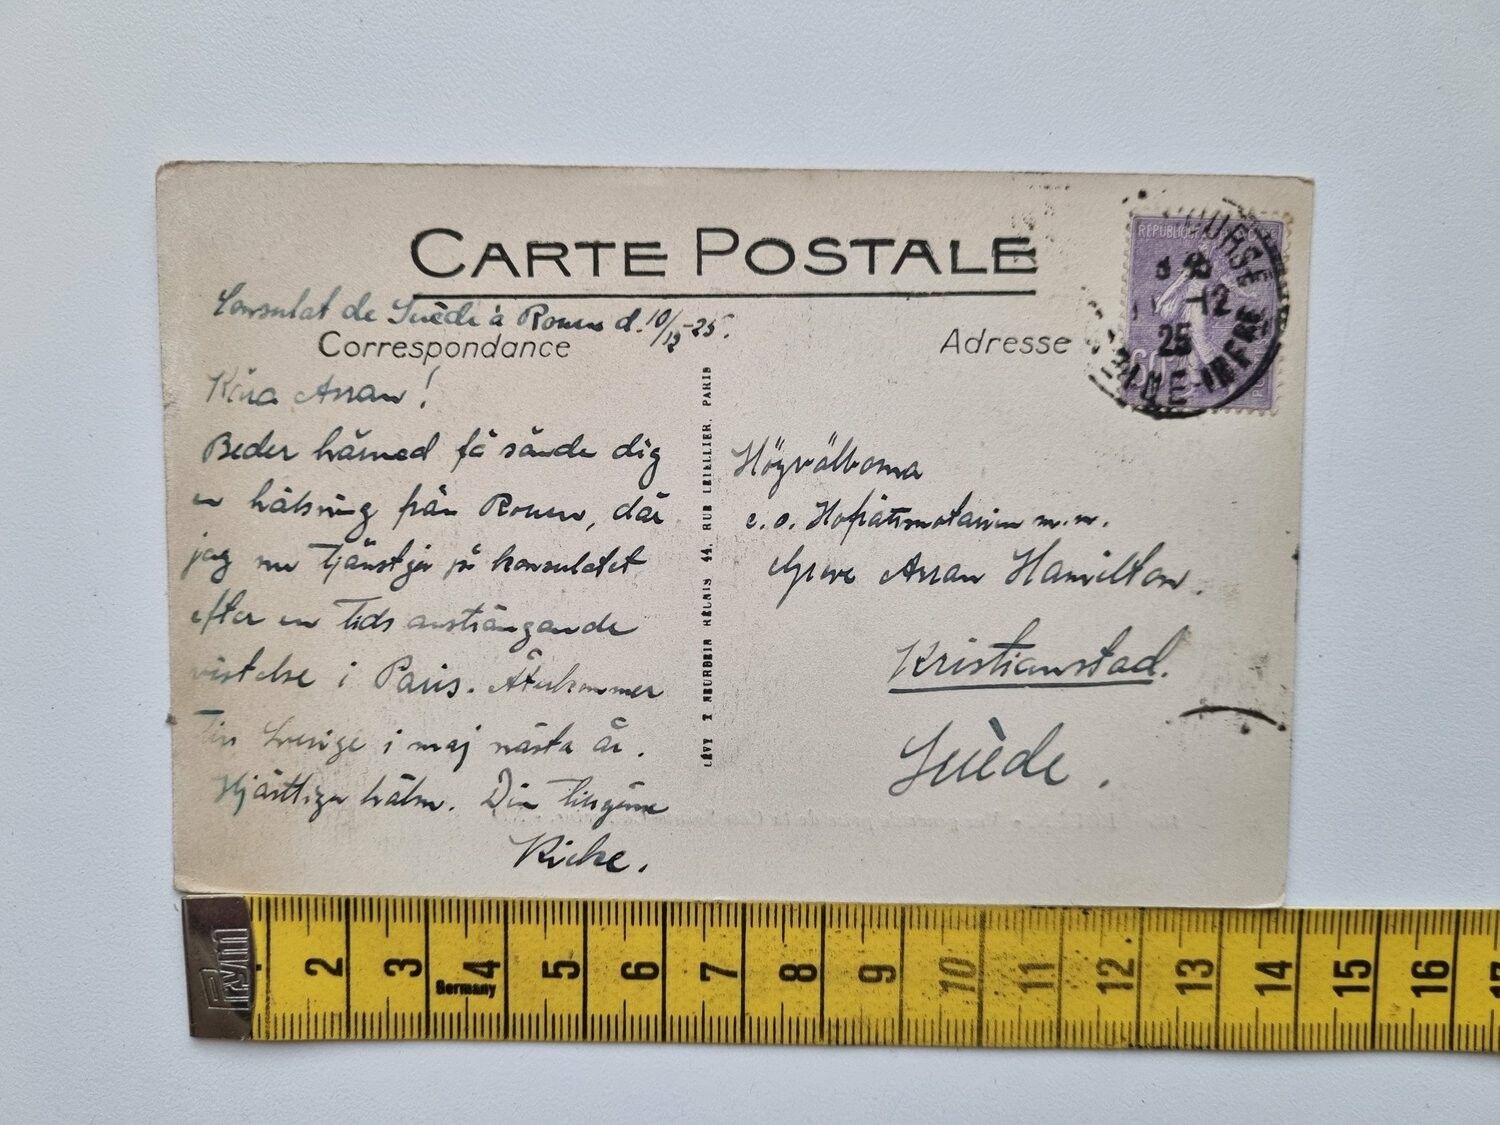 CARTE POSTALE
Consulat de Suède à Rouen d. 10/12-25.
Correspondance
Adresse
Kära Arran!
Beder härmed få sände dig
en hälsning från Rouen, där
jag nu tjänstgör på konsulatet
efter en tids ansträngande
vistelse i Paris. Återkommer
till Sverige i maj nästa år.
Hjärtliga hälsn. Din tillgivne
Högvälborna
Hofrättsnotarien m.m.
Greve Arran Hamilton.
Kristianstad.
Suède.
LÉVY & NEURDEIN RÉUNIS 44, RUE LETELLIER, PARIS
RÉPUBLIQUE
12
25
INFRE
Prym
2 3 4 5 6 7 8 9 10 11 12 13 14 15 16
Germany